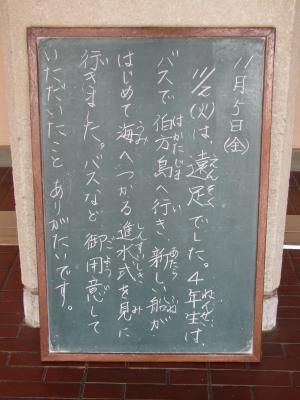 11月5日(金)
11/2(火)は遠足でした。4年生は、
バスで伯方島へ行き、新しい船が
はじめて海へつかる進水式を見に
行きました。バスなど御用意して
いただいたこと ありがたいです。